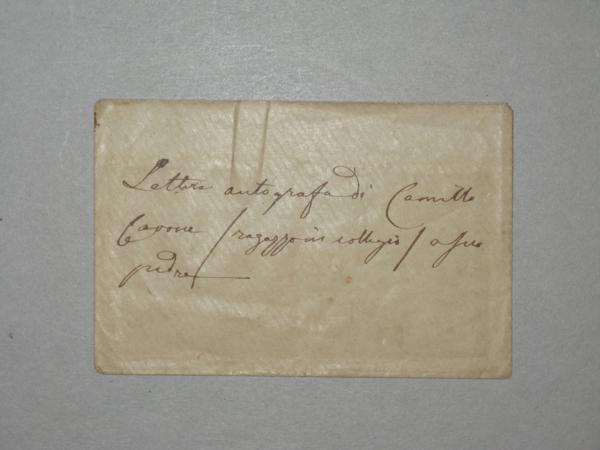 Lettera autografa di Camillo
Cavour / ragazzo in collegio / a suo
padre